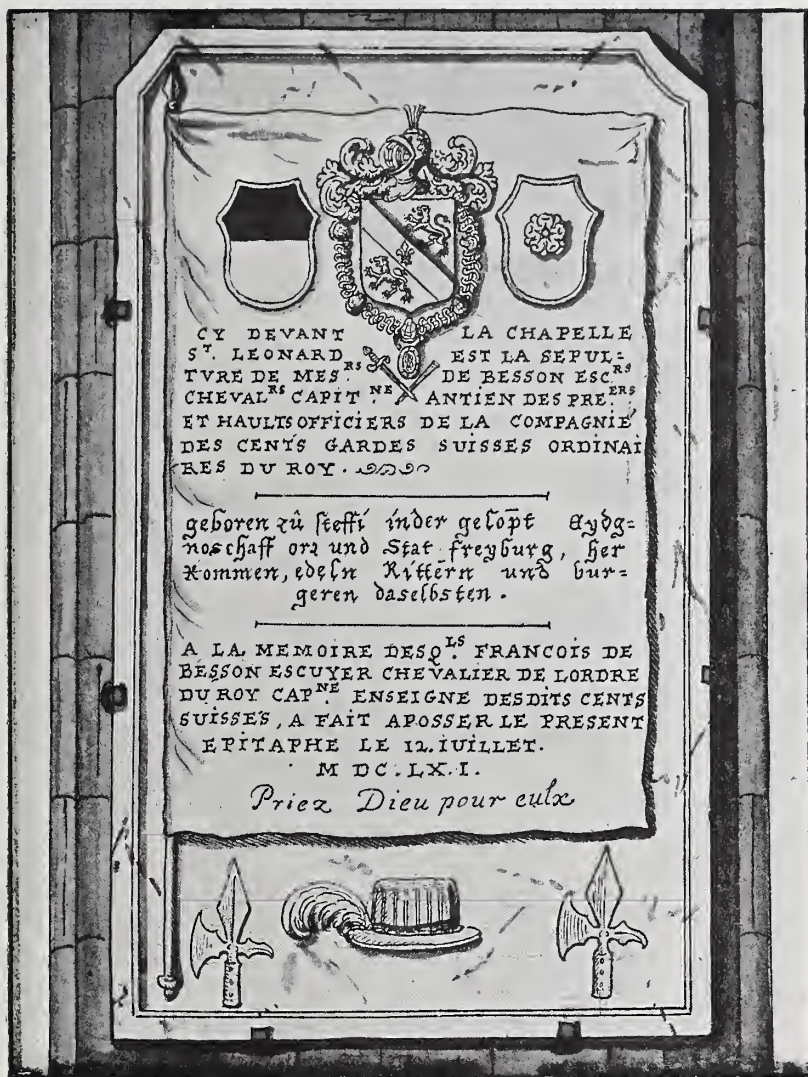 CY DEVANT LA CHAPELLE
Sᵀ. LEONARD EST LA SEPUL=
TVRE DE MES.ᴿˢ DE BESSON ESC.ᴿˢ
CHEVALᴿˢ CAPIT.ᴺᴱ ANTIEN DES PRE.ᴱᴿˢ
ET HAULTS OFFICIERS DE LA COMPAGNIE
DES CENTS GARDES SUISSES ORDINAI
RES DU ROY.
geboren zů steffi inder gelopt Eydg=
noschaff ort und Stat freyburg, her
kommen, edeln Rittern und bur=
geren daselbsten.
A LA MEMOIRE DESQ.ᴸˢ FRANCOIS DE
BESSON ESCUYER CHEVALIER DE LORDRE
DU ROY CAP.ᴺᴱ ENSEIGNE DESDITS CENTS
SUISSES, A FAIT APOSSER LE PRESENT
EPITAPHE LE 12. IUILLET.
M DC.LX.I.
Priez Dieu pour eulx